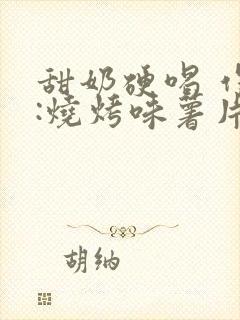 甜奶硬唱
:燒烤味薯片
胡纳